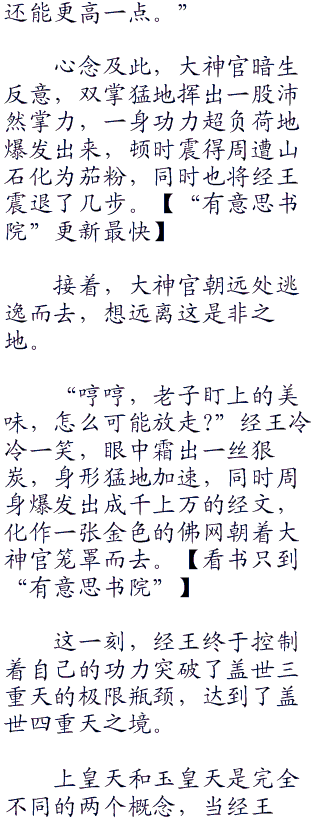 还能更高一点。”
心念及此，大神官暗生
反意，双掌猛地挥出一股沛
然掌力，一身功力超负荷地
爆发出来，顿时震得周遭山
石化为茄粉，同时也将经王
震退了几步。【“有意思书
院”更新最快】
接着，大神官朝远处逃
逸而去，想远离这是非之
地。
“哼哼，老子盯上的美
味，怎么可能放走?”经王冷
冷一笑，眼中霜出一丝狠
炭，身形猛地加速，同时周
身爆发出成千上万的经文，
化作一张金色的佛网朝着大
神官笼罩而去。【看书只到
“有意思书院”】
这一刻，经王终于控制
着自己的功力突破了盖世三
重天的极限瓶颈，达到了盖
世四重天之境。
上皇天和玉皇天是完全
不同的两个概念，当经王